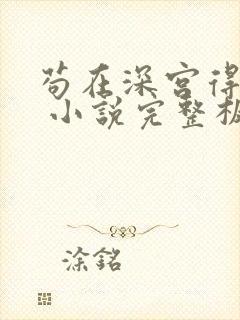 苟在深宫得
小說完整板
涂銘